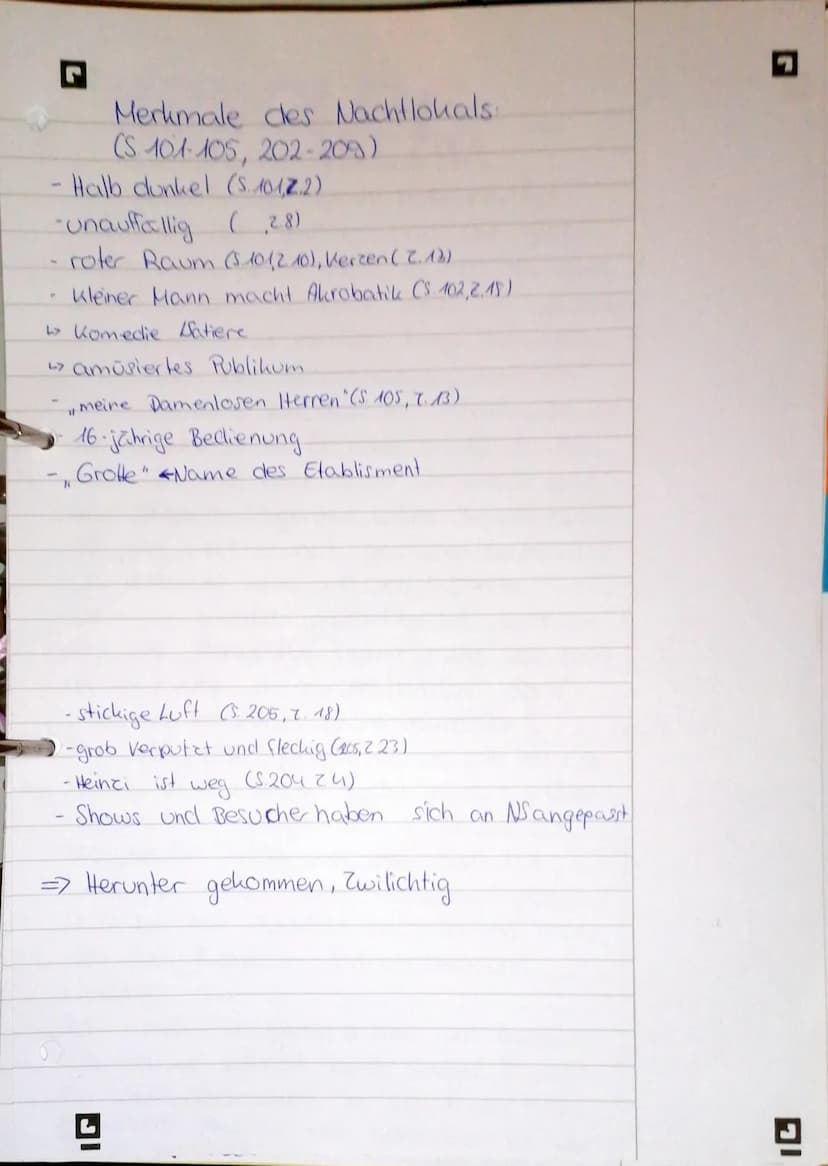 Merkmale des Nachtlokals:
(S 101-105, 202-209)
- Halb dunkel (S.101,Z.2)
- unauffällig ( ,Z8)
- roter Raum (S 101,Z 10), Kerzen (Z.13)
- kleiner Mann macht Akrobatik (S 102,Z.18)
↳ Komedie /Satiere
↳ amüsiertes Publikum
- „meine Damenlosen Herren" (S. 105, Z.13)
- 16-jährige Bedienung
- „Grotte" ←Name des Etablisment
- stickige Luft (S. 205, Z. 18)
- grob verputzt und fleckig (205,Z 23)
- Heinzi ist weg (S.204 Z 4)
- Shows und Besucher haben sich an NS angepasst
=> Herunter gekommen, Zwilichtig